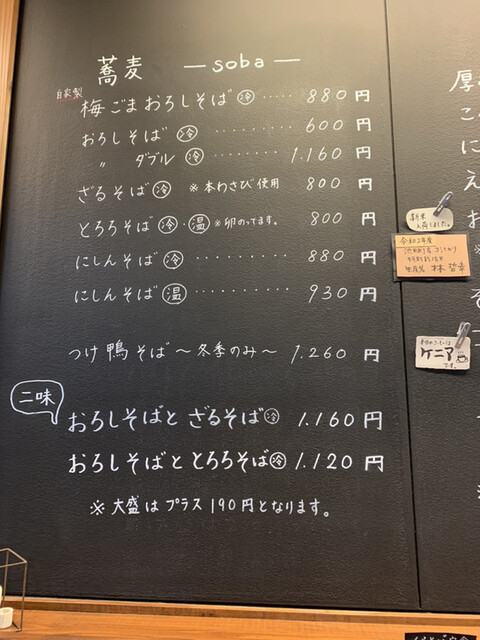 蕎麦 ―soba―
自家製
梅ごまおろしそば 冷 ‥‥‥ 880円
おろしそば 冷 ‥‥‥‥‥ 600円
〃 ダブル 冷 ‥‥‥‥ 1.160円
ざるそば 冷 ※本わさび使用 800円
とろろそば 冷・温 ※卵のってます。 800円
にしんそば 冷 ‥‥‥‥‥ 880円
にしんそば 温 ‥‥‥‥‥ 930円
つけ鴨そば～冬季のみ～ 1.260円
二味
おろしそばと ざるそば 冷 1.160円
おろしそばと とろろそば 冷 1.120円
※大盛はプラス190円となります。
厚
こ
に
え
新米
入荷しました。
令和2年産
池田町産コシヒカリ
特別栽培米
生産者 林 哲幸
ケニア
です。